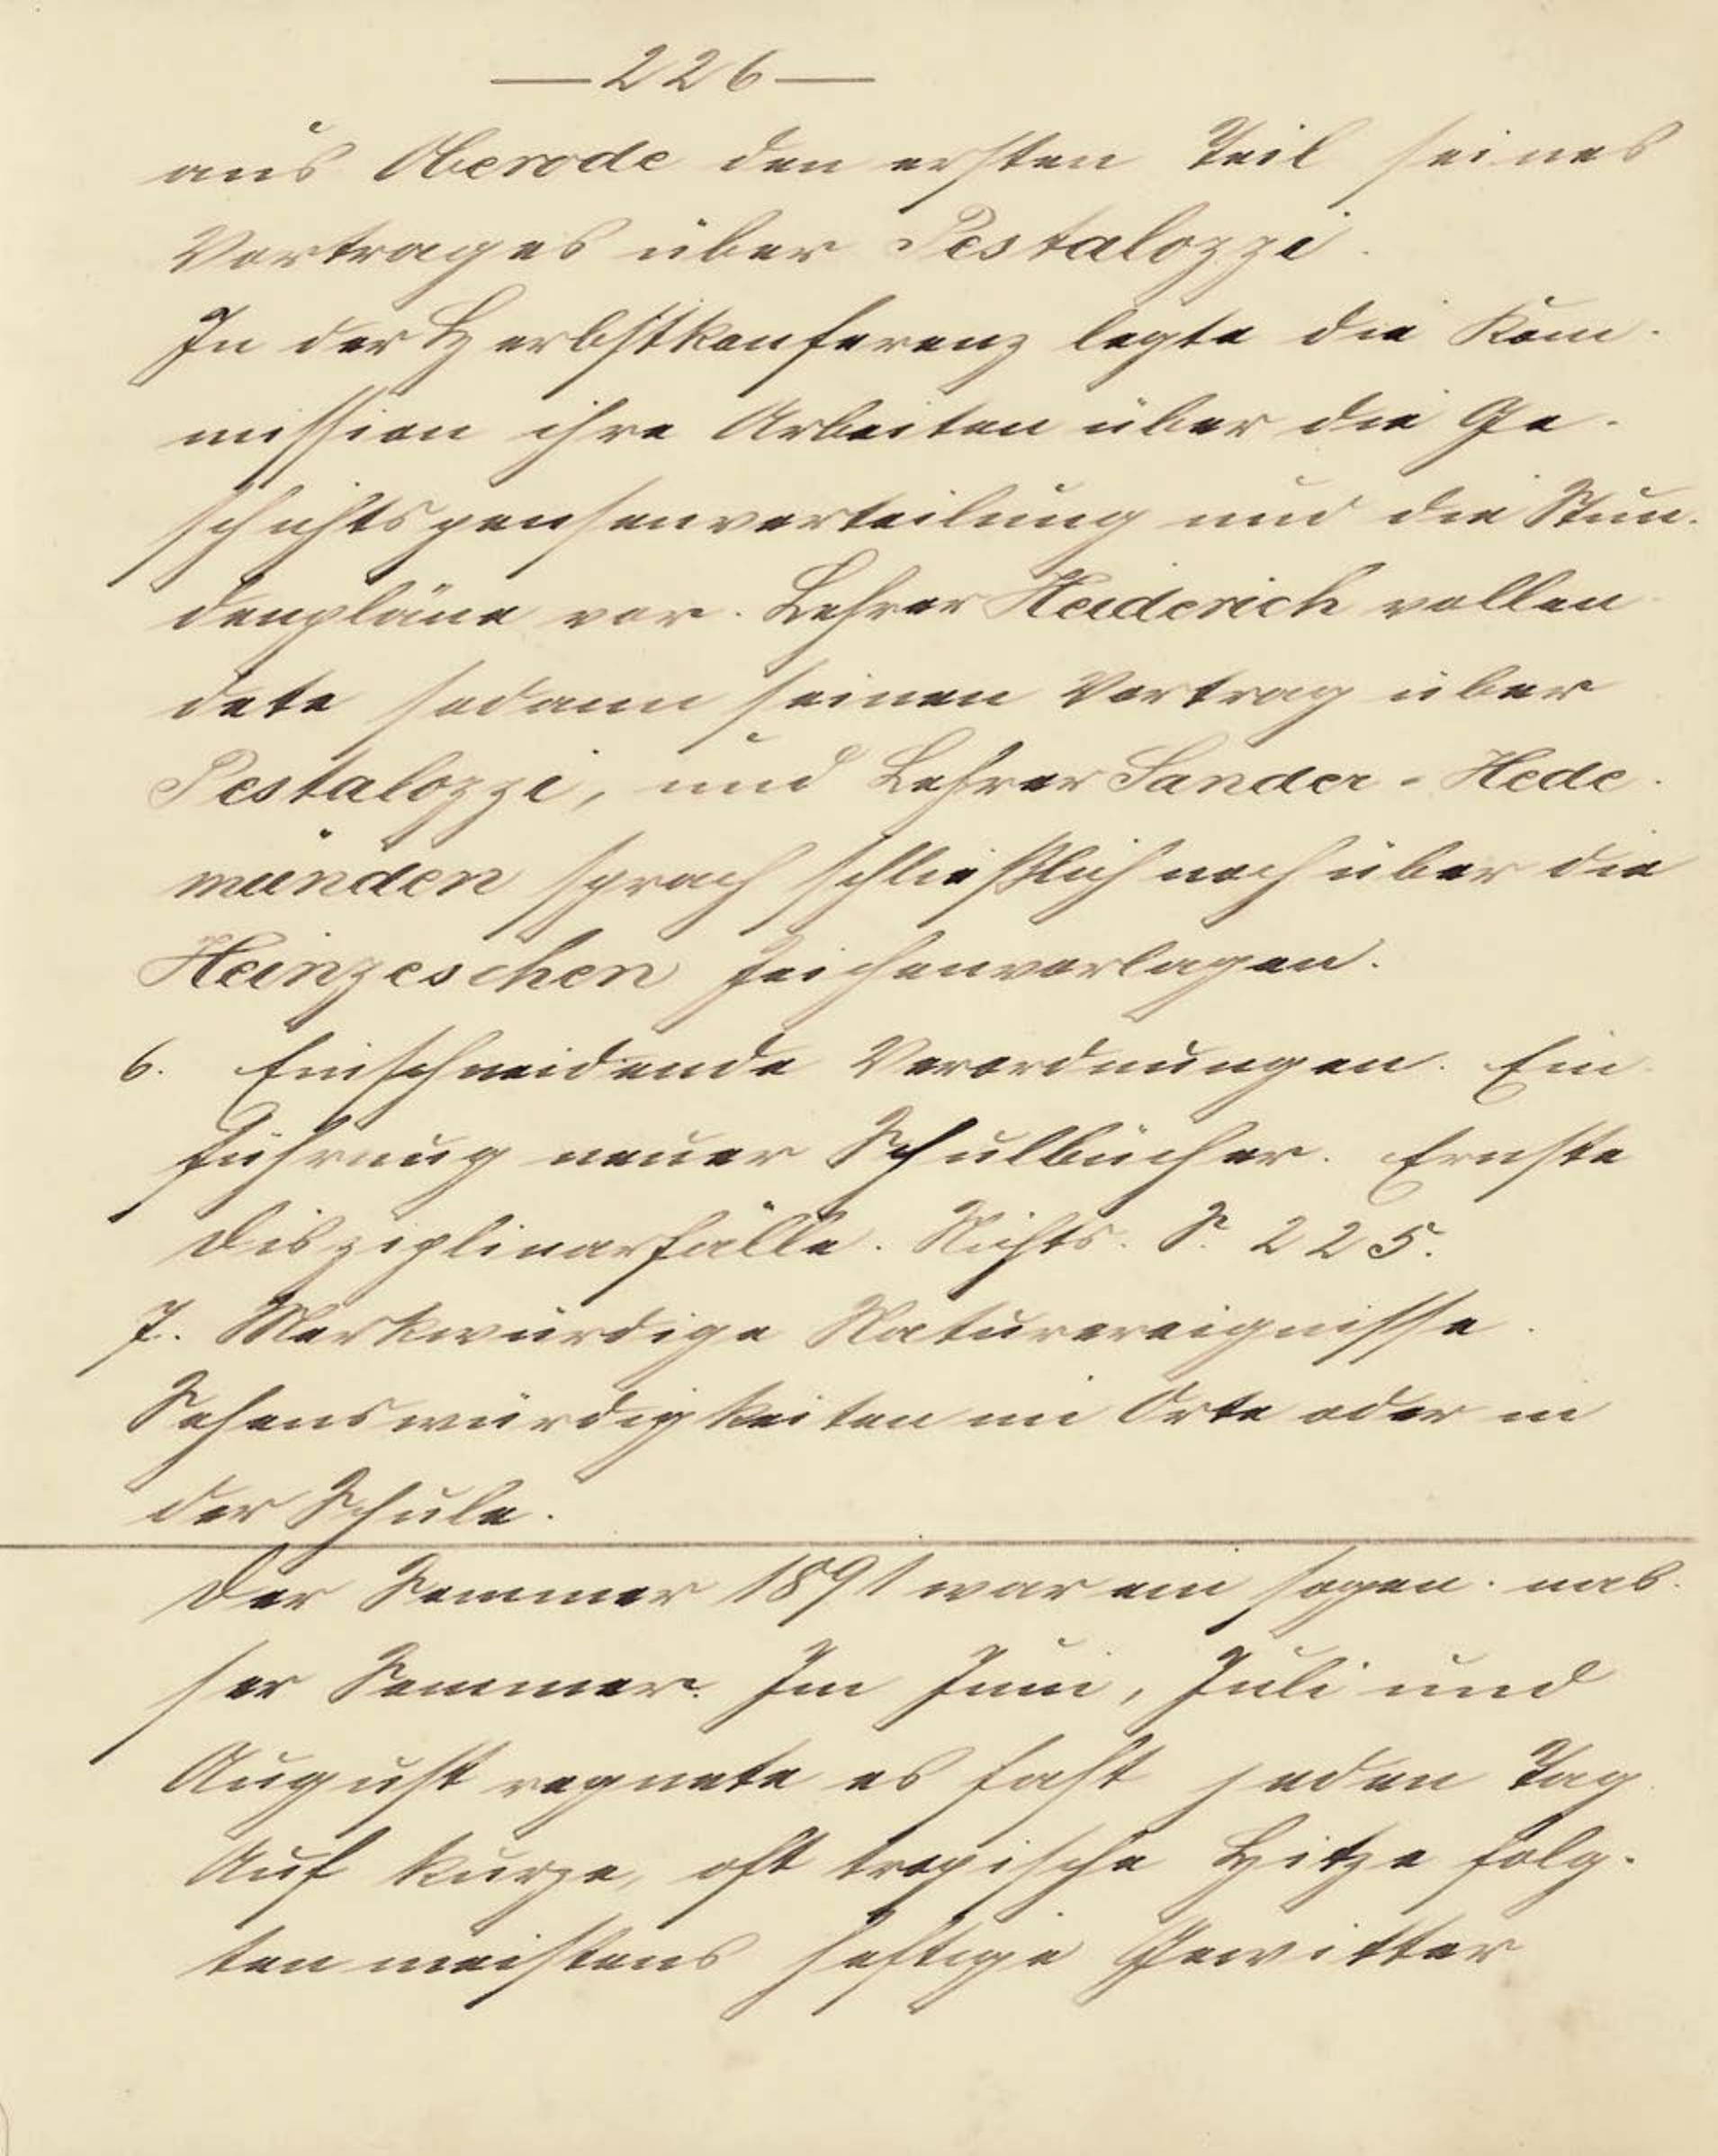 — 226 —
aus Oberode den ersten Teil seines
Vortrages über Pestalozzi.
In der Herbstkonferenz legte die Kom-
mission ihre Arbeiten über die Ge-
schichtspensenverteilung und die Stun-
denpläne vor. Lehrer Heiderich vollen-
dete sodann seinen Vortrag über
Pestalozzi, und Lehrer Sander-Hede-
münden sprach schließlich noch über die
Heinzeschen Zeichenvorlagen.
6. Einschneidende Verordnungen. Ein-
führung neuer Schulbücher. Ernste
Disziplinarfälle. Nichts. S. 225.
7. Merkwürdige Naturereignisse.
Sehenswürdigkeiten im Orte oder in
der Schule.
Der Sommer 1891 war ein sogen. nas-
ser Sommer. Im Juni, Juli und
August regnete es fast jeden Tag
Auf kurze, oft tropische Hitze folg-
ten meistens heftige Gewitter